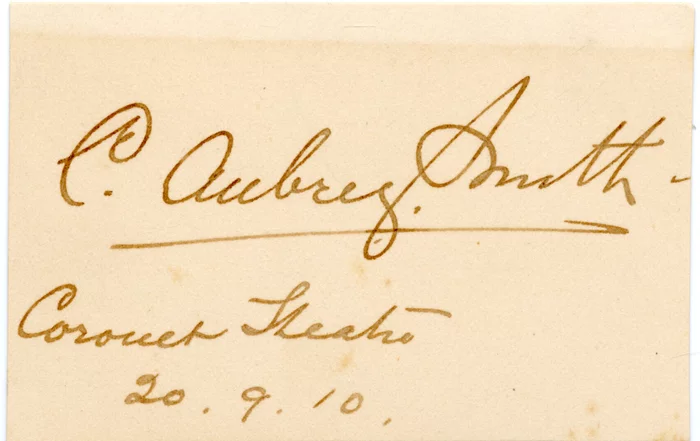 C. Aubrey Smith
Coronet Theatre
20.9.10.